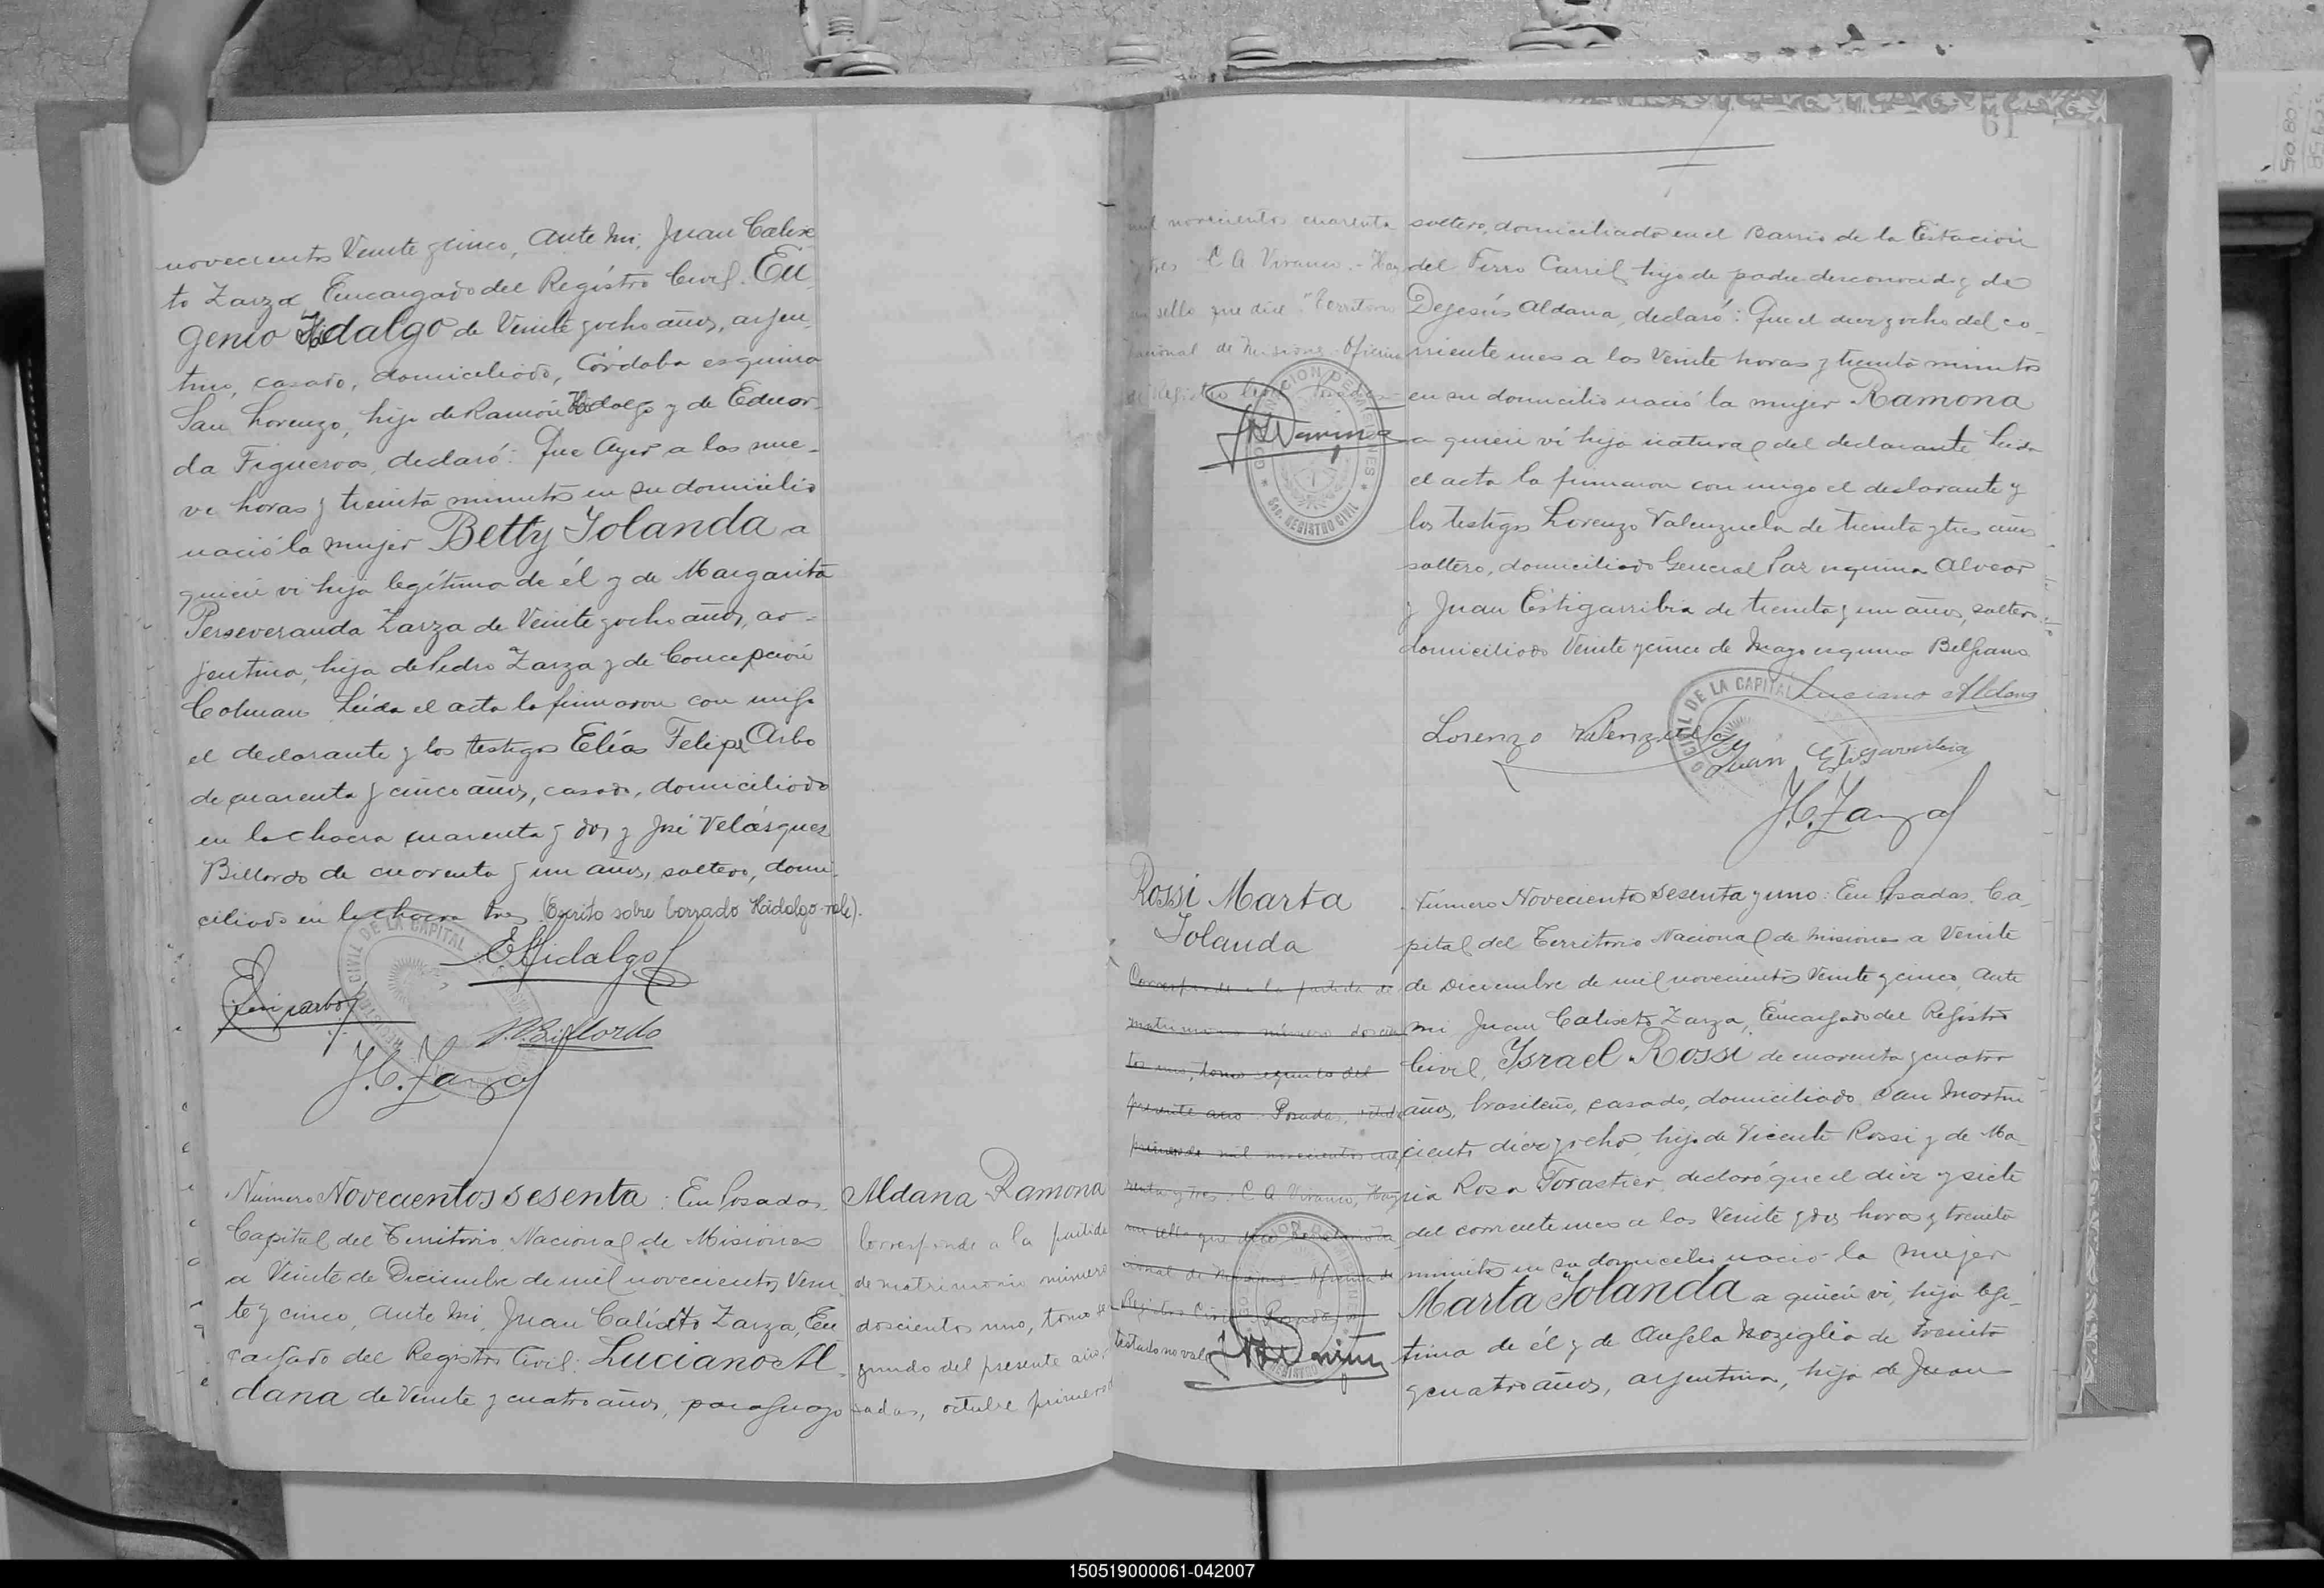 novecientos Veinte y cinco, Ante mi, Juan Calixe
to Zarza Encargado del Registro Civil. Eu
genio Hidalgo de Veinte y ocho años, arjen
tino, casado, domiciliado, Córdoba esquina
San Lorenzo, hijo de Ramón Hidalgo y de Eduar
da Figueroa, declaró: Que Ayer a las nue-
ve horas y treinta minutos en su domicilio
nació la mujer Betty Yolanda a
quien vi hija legítima de él y de Margarita
Perseveranda Zarza de Veinte y ocho años, ar-
jentina, hija de Pedro Zarza y de Concepción
Colman Leída el acta la firmaron con migo
el declarante y los testigos Elías Felipe Arbo
de cuarenta y cinco años, casado, domiciliado
en la chacra cuarenta y dos y José Velásquez
Billordo de cuarenta y un años, soltero, domi-
ciliado en la chacra tres (Escrito sobre borrado Hidalgo-vale).
CIVIL DE LA CAPITAL
EHidalgo
Billordo
J.C.Zarza
Número Novecientos sesenta: En Posadas,
Capital del Territorio Nacional de Misiones
a Veinte de Diciembre de mil novecientos Vein
te y cinco, Ante mi, Juan Calixto Zarza, En
cargado del Registro Civil: Luciano Al
dana de Veinte y cuatro años, paraguayo
Aldana Ramona
Corresponde a la partida
de matrimonio número
doscientos uno, tomo se
gundo del presente año,
sadas, octubre primero
61
mil novecientos cuarenta
y tres C A Vivanco.- Hay
un sello que dice "Territorio
Nacional de Misiones Oficina
GOBERNACION DE MISIONES
Sec. REGISTRO CIVIL
soltero, domiciliado en el Barrio de la Estación
del Ferro Carril hijo de padre desconocido y de
Dejesús Aldana, declaró: Que el diez y ocho del co-
rriente mes a las Veinte horas y treinta minutos
en su domicilio nació la mujer Ramona
a quien vi hija natural del declarante Leida
el acta la firmaron con migo el declarante y
los testigos Lorenzo Valenzuela de treinta y tres años
soltero, domiciliado General Paz esquina Alvear
y Juan Estigarribia de treinta y un años, soltero
domiciliado Veinte y cinco de Mayo esquina Belgrano
CIVIL DE LA CAPITAL
Luciano Aldana
Lorenzo Valenzuela
Juan Estigarribia
J.C.Zarza
Rossi Marta
Yolanda
Corresponde a la partida de
matrimonio número doscien
tos uno, tomo segundo del
presente año. Posadas, octubre
primero de mil novecientos cua
renta y tres. C A Vivanco, Hay
un sello que dice Territorio Na
cional de Misiones. Oficina de
Registro Civil. Posadas
testado no vale
Número Novecientos sesenta y uno: En Posadas, Ca-
pital del Territorio Nacional de Misiones a Veinte
de Diciembre de mil novecientos Veinte y cinco, Ante
mi Juan Calixto Zarza, Encargado del Registro
Civil, Israel Rossi de cuarenta y cuatro
años, brasileño, casado, domiciliado San Martín
ciento diez y ocho, hijo de Vicente Rossi y de Ma-
ria Rosa Forastier, declaró que el diez y siete
del corriente mes a las Veinte y dos horas y treinta
minutos en su domicilio nació la mujer
Marta Yolanda a quien vi, hija legí-
tima de él y de Angela Noziglia de treinta
y cuatro años, argentina, hija de Juan
150519000061-042007